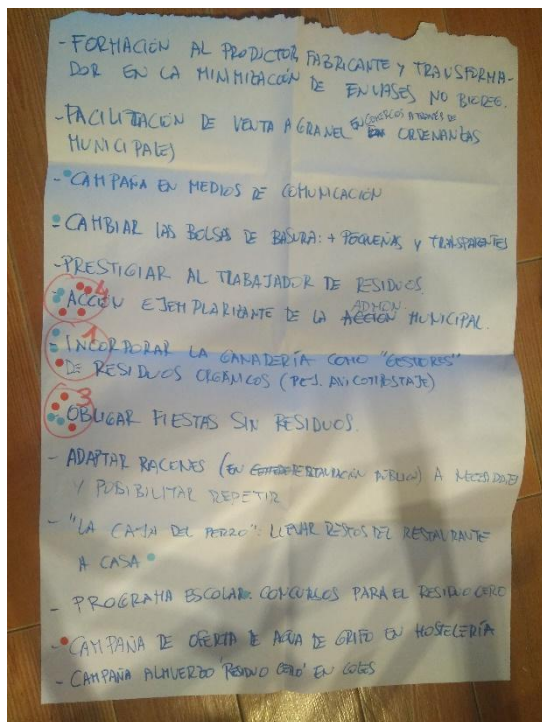 - FORMACIÓN AL PRODUCTOR, FABRICANTE Y TRANSFORMA-
DOR EN LA MINIMIZACIÓN DE ENVASES NO BIODEG.
- FACILITACIÓN DE VENTA A GRANEL EN COMERCIOS A TRAVÉS DE ORDENANZAS
MUNICIPALES
- CAMPAÑA EN MEDIOS DE COMUNICACIÓN
- CAMBIAR LAS BOLSAS DE BASURA: + PEQUEÑAS Y TRANSPARENTES
- PRESTIGIAR AL TRABAJADOR DE RESIDUOS.
4
- ACCIÓN EJEMPLARIZANTE DE LA ADMON. MUNICIPAL.
1
- INCORPORAR LA GANADERÍA COMO "GESTORES"
DE RESIDUOS ORGÁNICOS (P.EJ. AVICOMPOSTAJE)
3
- OBLIGAR FIESTAS SIN RESIDUOS.
- ADAPTAR RACIONES (EN RESTAURACIÓN PÚBLICA) A NECESIDADES
Y POSIBILITAR REPETIR
- "LA CAJA DEL PERRO": LLEVAR RESTOS DEL RESTAURANTE
A CASA
- PROGRAMA ESCOLAR: CONCURSOS PARA EL RESIDUO CERO
- CAMPAÑA DE OFERTA DE AGUA DE GRIFO EN HOSTELERÍA
- CAMPAÑA ALMUERZO 'RESIDUO CERO' EN COLES